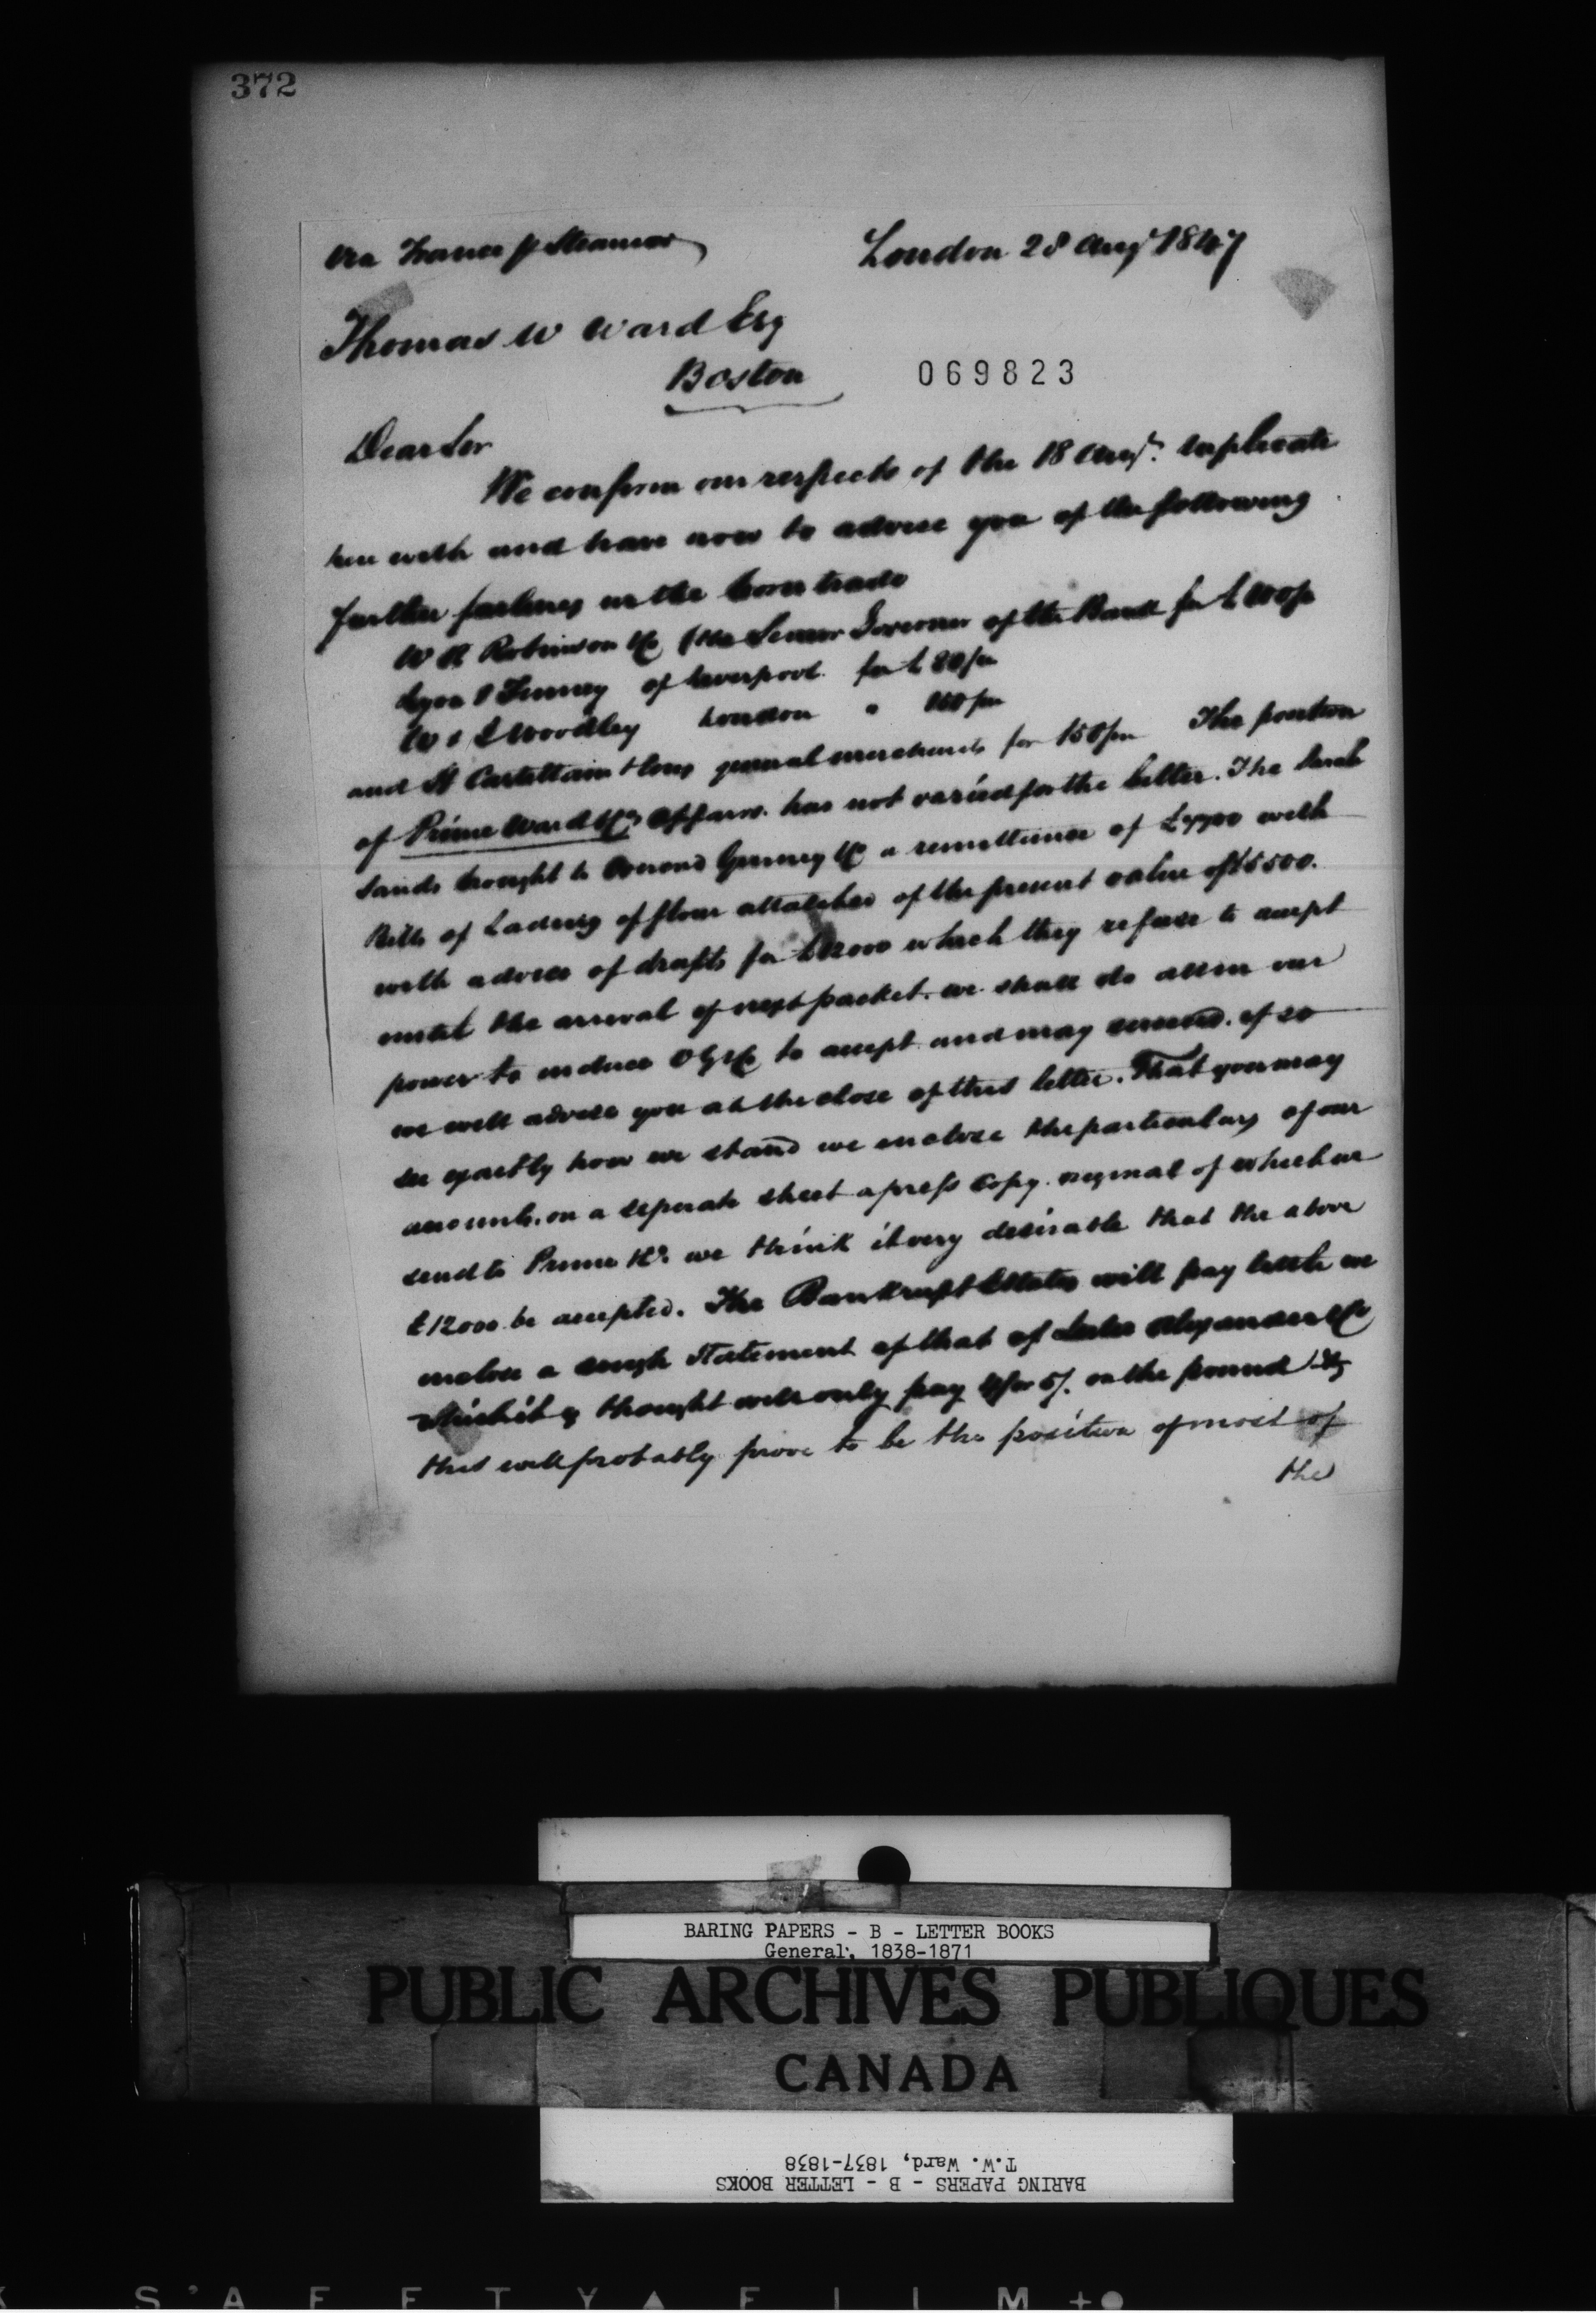 372
Via France p Steamer
London 28 Augt 1847
Thomas W Ward Esq
Boston
069823
Dear Sir
We confirm our respects of the 18 Augt. duplicate
herewith and have now to advise you of the following
further failures in the Corn trade
W R Robinson &Co (the Senior Governor of the Bank for £
Lyon & Finney of Liverpool for £ 20/m
W & J Woodley London "
and A Castellain & Sons general merchants for 150/m The position
of Prime Ward &Cos affairs has not varied for the better. The
Sands brought to Overend Gurney &Co a remittance of with
Bills of Lading of flour attached of the present value of £5500.
with advice of drafts for £12000 which they refuse to accept
until the arrival of next packet. we shall do all in our
power to induce OG&Co to accept and may succeed. if so
we will advise you at the close of this letter. That you may
see exactly how we stand we enclose the particulars of our
accounts. on a seperate sheet a press copy. original of which we
send to Prime &Co. we think it very desirable that the above
£12000 be accepted. The Bankrupt Estates will pay little we
enclose a rough Statement of that of Lesley Alexander &Co
which it is thought will only pay 4/ or 5/. in the pound &
this will probably prove to be the position of most of
the
BARING PAPERS - B - LETTER BOOKS
General, 1838-1871
PUBLIC ARCHIVES PUBLIQUES
CANADA
BARING PAPERS - B - LETTER BOOKS
T.W. Ward, 1837-1838
S'AFETY▲FILM+●